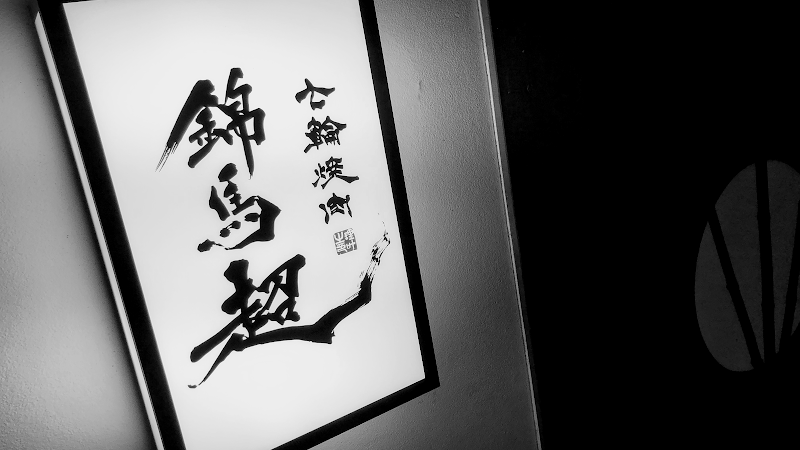 七輪焼肉
錦馬超